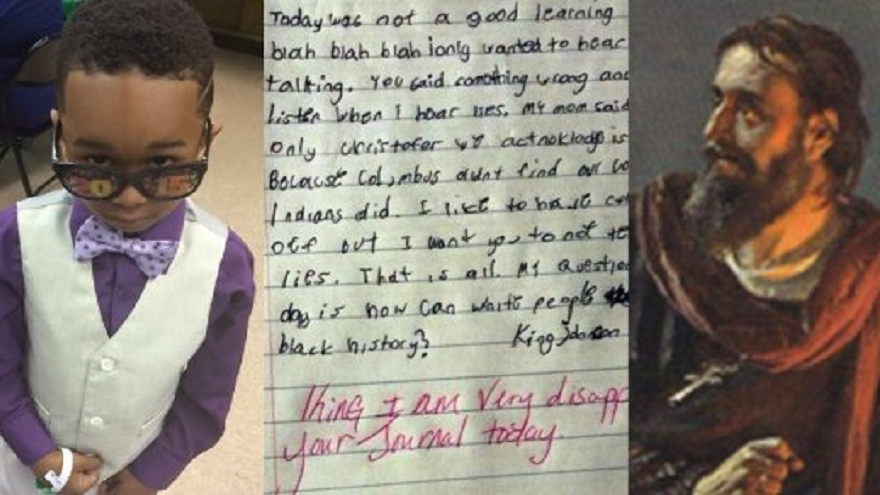 Today was not a good learning
blah blah blah ionly wanted to hear
talking. You said somthing wrong and
listen when I hear lies. My mom said
only christofer we acknoklodge is
Because Columbus didnt find our co
Indians did. I like to have co
off but I want you to not te
lies. That is all. My question
day is how can white people
black history? King Johnson
King I am very disapp
your Journal today.